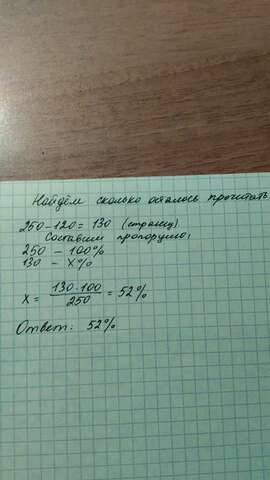 Найдём сколько осталось прочитать
250-120= 130 (страниц)
Составим пропорцию:
250 - 100%
130 - X%
X = 130·100/250 = 52%
Ответ: 52%